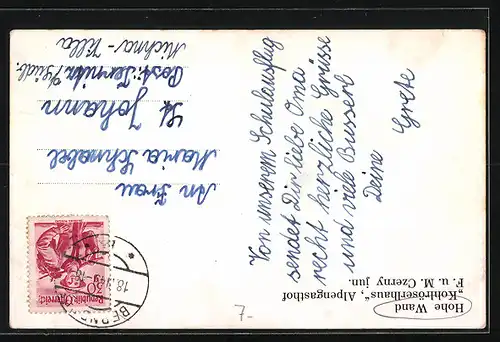 Hohe Wand
„Kohlröserlhaus", Alpengasthof
F. u. M. Czerny jun.
Von unserem Schulausflug
sendet Dir liebe Oma
recht herzliche Grüsse
und viele Busserl
Deine
Grete
An Frau
Maria Schnabel
St. Johann
Post: Ternitz
Michna-Villa
30
Republik Österreich
18.
7-